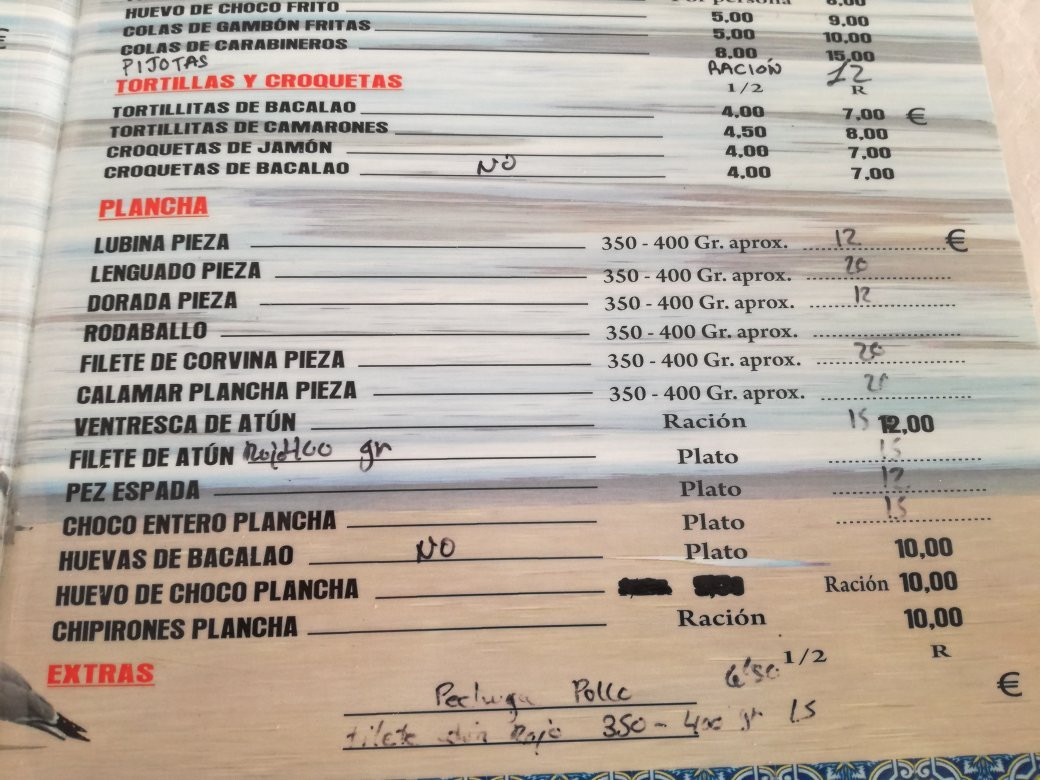 Por persona 8,00
HUEVO DE CHOCO FRITO 5,00 9,00
COLAS DE GAMBÓN FRITAS 5,00 10,00
COLAS DE CARABINEROS 8,00 15,00
PIJOTAS RACIÓN 12
TORTILLAS Y CROQUETAS 1/2 R
TORTILLITAS DE BACALAO 4,00 7,00 €
TORTILLITAS DE CAMARONES 4,50 8,00
CROQUETAS DE JAMÓN 4,00 7,00
CROQUETAS DE BACALAO NO 4,00 7,00
PLANCHA
LUBINA PIEZA 350 - 400 Gr. aprox. 12 €
LENGUADO PIEZA 350 - 400 Gr. aprox. 20
DORADA PIEZA 350 - 400 Gr. aprox. 12
RODABALLO 350 - 400 Gr. aprox.
FILETE DE CORVINA PIEZA 350 - 400 Gr. aprox. 20
CALAMAR PLANCHA PIEZA 350 - 400 Gr. aprox. 20
VENTRESCA DE ATÚN Ración 15 12,00
FILETE DE ATÚN gr Plato 15
PEZ ESPADA Plato 12
CHOCO ENTERO PLANCHA Plato 15
HUEVAS DE BACALAO NO Plato 10,00
HUEVO DE CHOCO PLANCHA Ración 10,00
CHIPIRONES PLANCHA Ración 10,00
EXTRAS 1/2 R
Pechuga Pollo 6'50 €
filete Rojo 350 - 400 gr 15